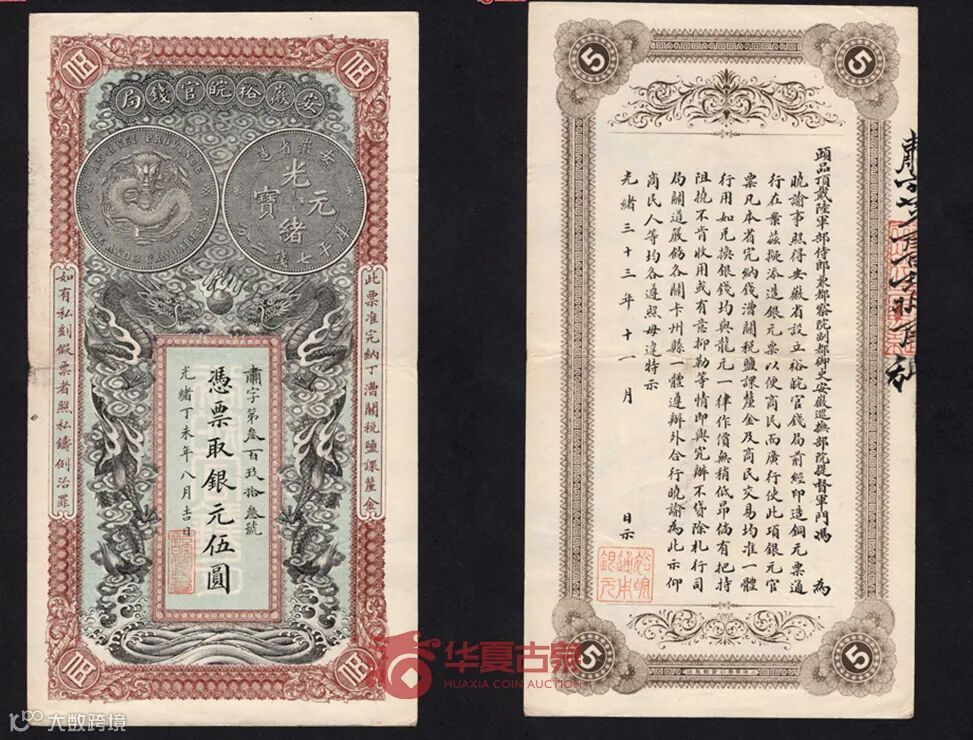 伍
伍
安徽裕皖官錢局
AN-HWEI PROVINCE
安徽省造
光緒元寶
庫平七錢二分
此票准完納丁漕關稅鹽課釐金
如有私刻假票者照私鑄例治罪
肅字第叁百玖拾叁號
憑票取銀元伍圓
光緒丁未年八月吉日
伍
伍
5
5
頭品頂戴陸軍部侍郎兼都察院副都御史安徽巡撫部院提督軍門馮 為
曉諭事照得安徽省設立裕皖官錢局前經印造銅元票通
行在案茲擬添造銀元票以便商民而廣行使此項銀元官
票凡本省完納錢漕關稅鹽課釐金及商民交易均准一體
行用如兌換銀錢均與龍元一律作價無稍低昂倘有把持
阻撓不肯收用或有意抑勒等情即與究辦不貸除札行司
局關道嚴飭各關卡州縣一體遵辦外合行曉諭為此示仰
商民人等均各遵照毋違特示
光緒三十三年十一月 日示
裕皖
通本
銀元
5
5
华夏古泉
HUAXIA COIN AUCTION
大数跨境